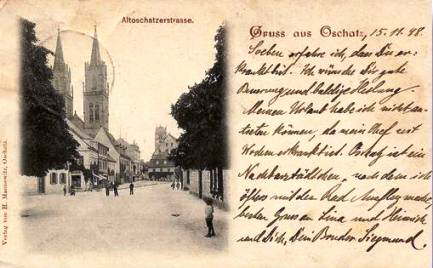 Altoschatzerstrasse.
Gruss aus Oschatz, 15.11.98.
Soeben erfahre ich, dass Du er-
krankt bist. Ich wünsche Dir gute
Besserung und baldige Heilung.
Meinen Urlaub habe ich nicht an-
treten können, da mein Chef seit
Wochen erkrankt ist. Oschatz ist ein
Nachbarstädtchen, nach dem ich
öfters mit dem Rad Ausflug mache,
besten Gruss an Lina und Heinrich
und Dich, Dein Bruder Siegmund.
Verlag von H. Oschatz.